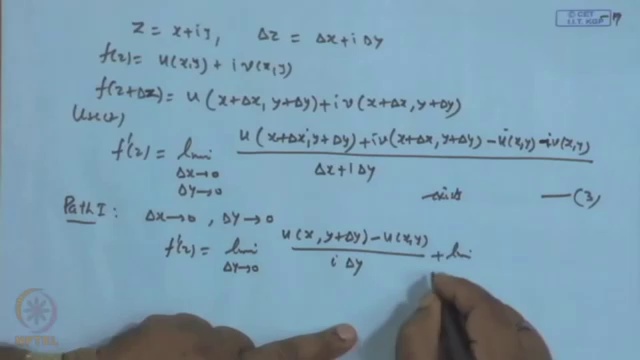 © CET
I.I.T. KGP
Z = x+iy, Δz = Δx+iΔy
f(z) = u(x,y) + i v(x,y)
f(z+Δz) = u(x+Δx, y+Δy) + i v(x+Δx, y+Δy)
f'(z) = lim Δx→0 Δy→0 u(x+Δx, y+Δy) + iv(x+Δx, y+Δy) - u(x,y) - iv(x,y) / Δx+iΔy
exists —(3)
Path I: Δx→0, Δy→0
f'(z) = lim Δy→0 u(x, y+Δy) - u(x,y) / iΔy + lim
NPTEL